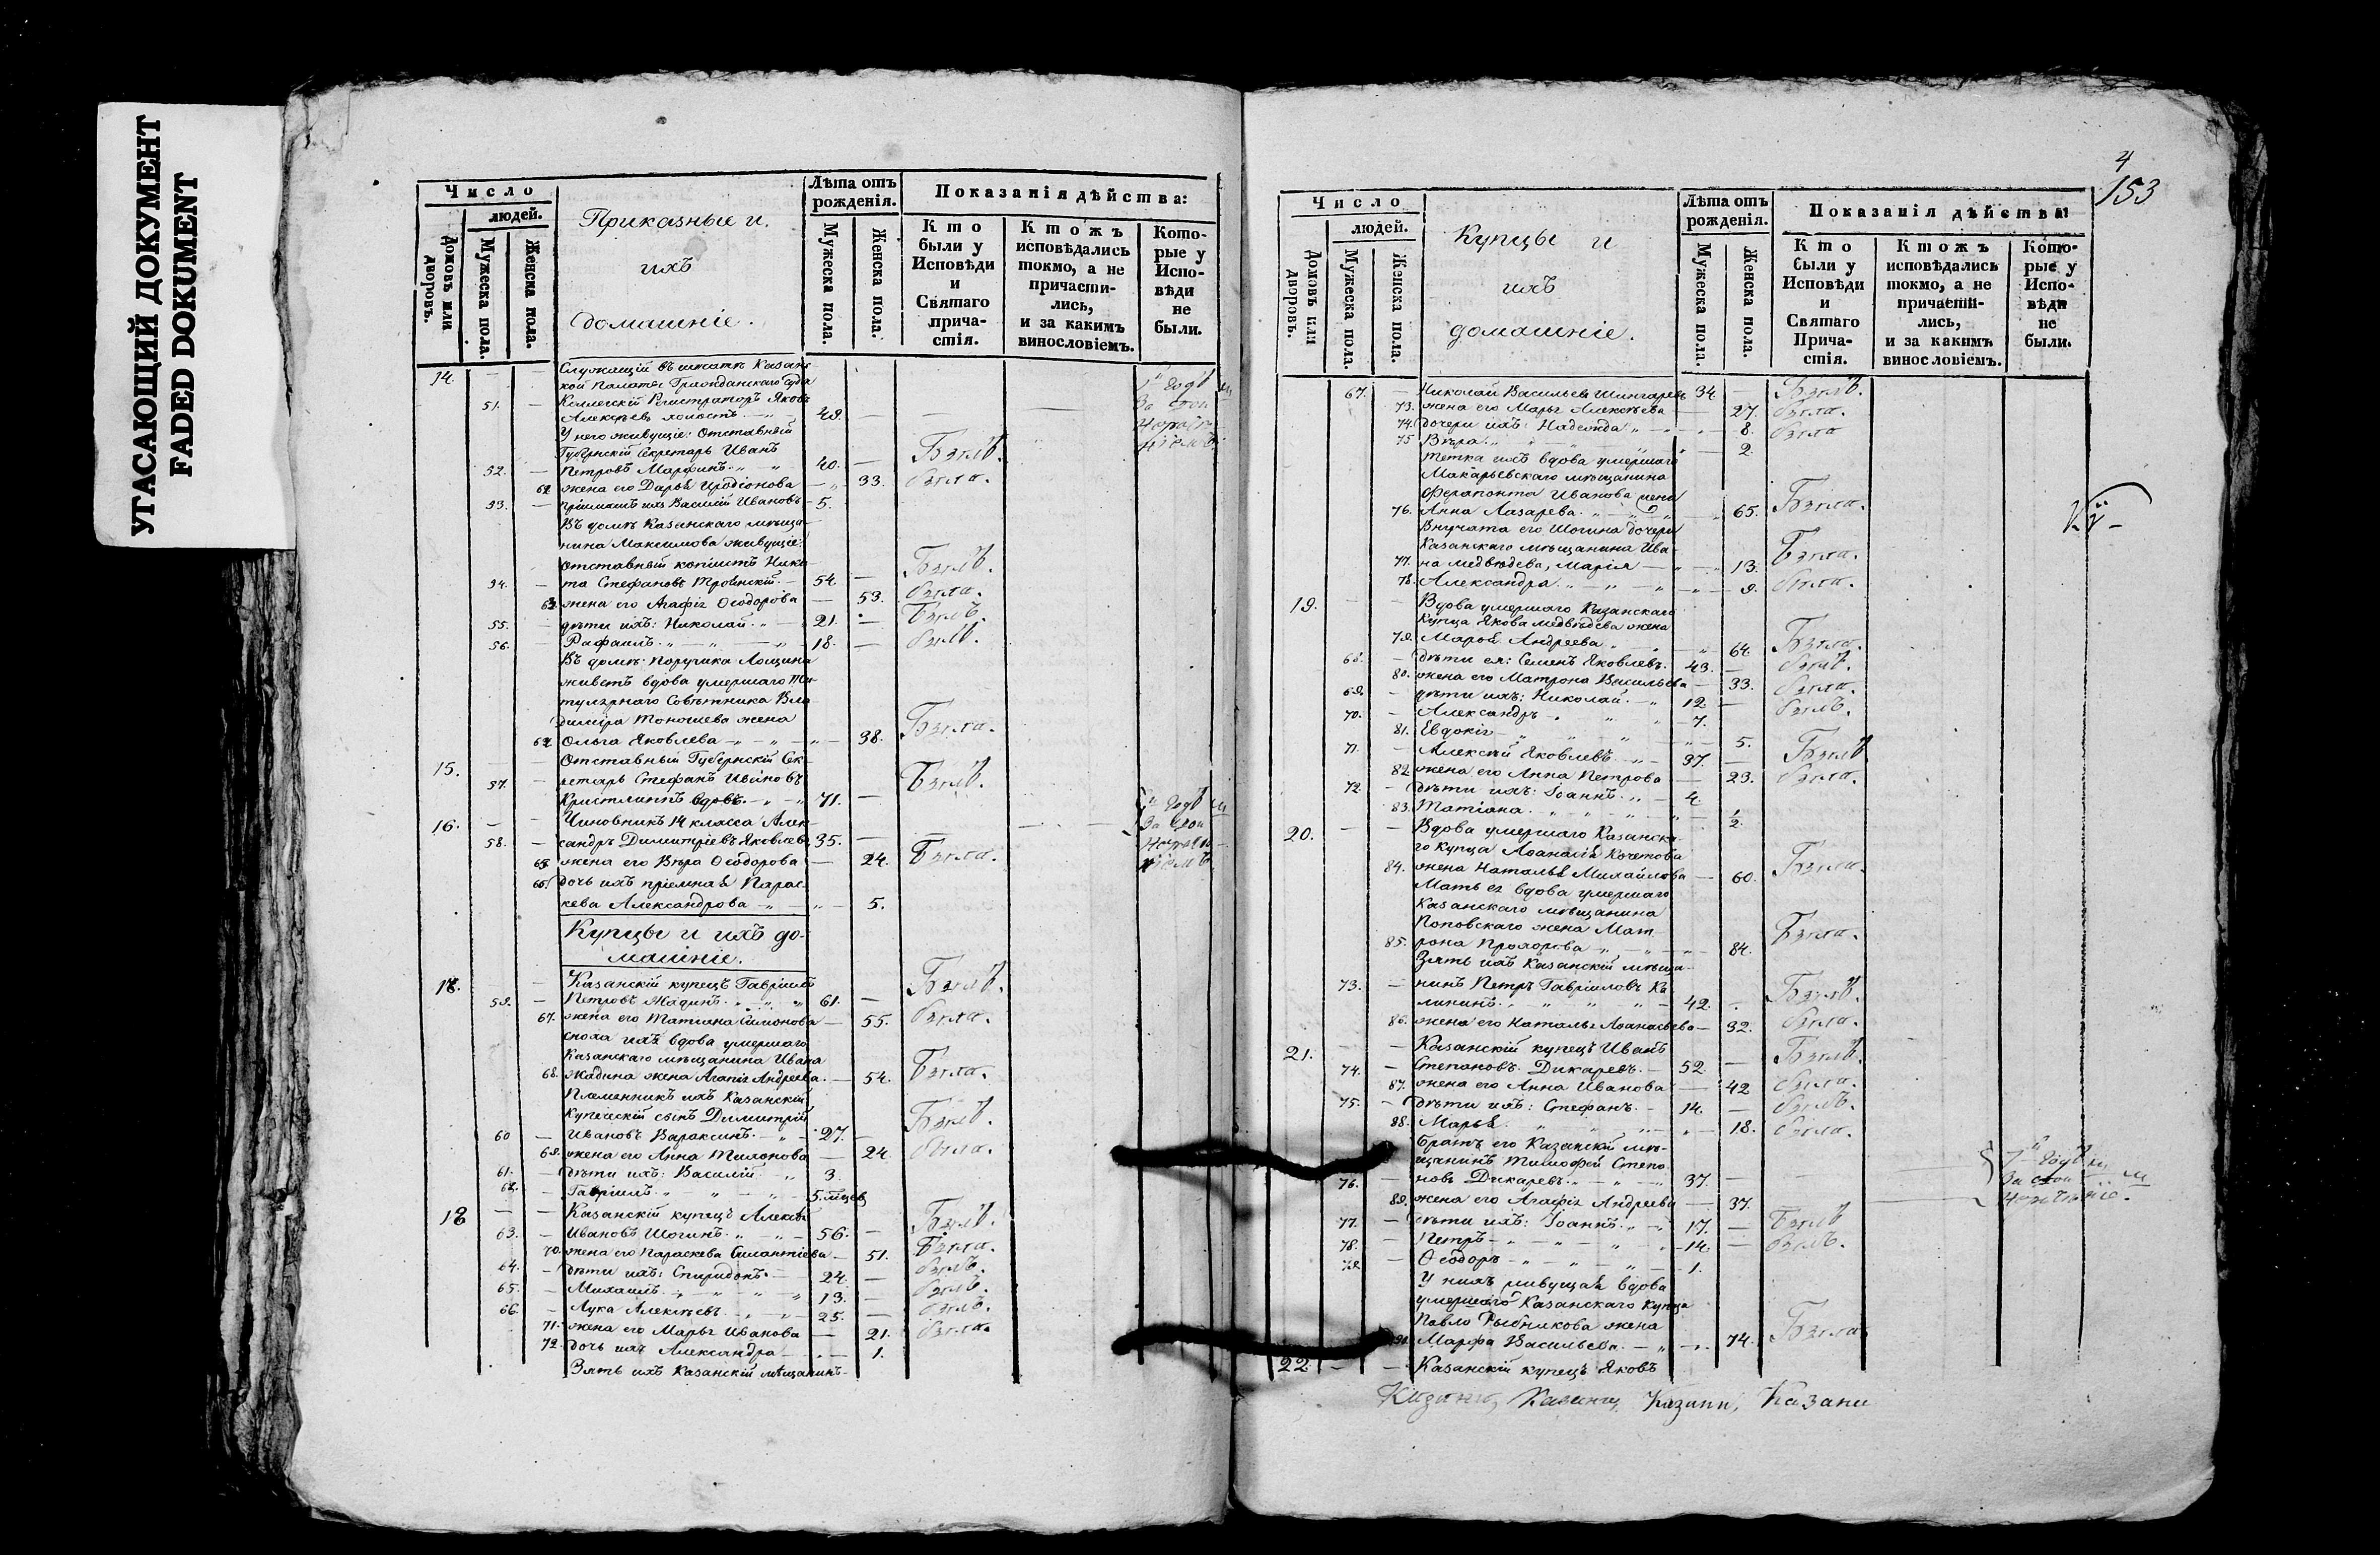 УГАСАЮЩИЙ ДОКУМЕНТ
FADED DOKUMENT
Число
людей.
Домовъ или дворовъ.
Мужеска пола.
Женска пола.
Приказные и
ихъ
домашніе.
Лѣта отъ рожденія.
Мужеска пола.
Женска пола.
Показанія дѣйства:
Кто были у Исповѣди и Святаго причастія.
Ктожъ исповѣдались токмо, а не причастились, и за какимъ винословіемъ.
Которые у Исповѣди не были.
14. — — Служащій въ штатѣ Казанс
кой Палаты Гражданскаго Суда
51. — Коллегскій Регистраторъ Яковъ
Алексѣевъ холостъ 49. — — —
У него живущіе: Отставный
Губернскій Секретарь Иванъ
52. — Петровъ Марфинъ 40. — Былъ.
62 жена его Дарья Иродіонова — 33. была.
53. — пріимышъ ихъ Василій Ивановъ 5.
Въ домѣ Казанскаго мѣща-
нина Максимова живущіе:
отставный копіистъ Ники-
54. — та Стефановъ Троинскій 54. — Былъ.
63. жена его Агафія Ѳеодорова — 53. была.
55. — дѣти ихъ: Николай 21. — Былъ.
56. — Рафаилъ 18. — былъ.
Въ домѣ Поручика Лощина
живетъ вдова умершаго Ти-
тулярнаго Совѣтника Вла-
диміра Тоношева жена
64 Ольга Яковлева — 38. Была.
15. — — Отставный Губернскій Сек-
57. — ретарь Стефанъ Ивановъ
Кристлинъ вдовъ 71. — Былъ.
16. — — Чиновникъ 14 класса Алек-
58. — сандръ Димитріевъ Яковлевъ 35. —
65 жена его Вѣра Ѳеодорова — 24. Была.
66. дочь ихъ пріемная Парас-
кева Александрова — 5.
Купцы и ихъ до-
машніе.
17. — Казанскій купецъ Гавріилъ
59. — Петровъ Жадинъ 61. — Былъ.
67. жена его Татіана Симонова — 55. была.
сноха ихъ вдова умершаго
Казанскаго мѣщанина Ивана
68. Жадина жена Агапія Андреева — 54. Была.
Племенникъ ихъ Казанскій
купеческій сынъ Димитрій
60 — Ивановъ Вараксинъ 27. — Былъ.
69. жена его Анна Тихонова — 24 была.
61. — дѣти ихъ: Василій 3.
62. — Гавріилъ 5. мѣсяцев
18 — — Казанскій купецъ Алексѣй
63. — Ивановъ Шогинъ 56. — Былъ.
70. жена его Параскева Силантіева — 51. Была.
64. — дѣти ихъ: Спиридонъ 24. — былъ.
65. — Михаилъ 13. — былъ.
66. — Лука Алексѣевъ 25. — былъ.
71. жена его Марья Иванова — 21. была.
72. дочь ихъ Александра — 1.
Зять ихъ Казанскій мѣщанинъ
4
153
Число
людей.
Домовъ или дворовъ.
Мужеска пола.
Женска пола.
Купцы и
ихъ
домашніе.
Лѣта отъ рожденія.
Мужеска пола.
Женска пола.
Показанія дѣйства:
Кто были у Исповѣди и Святаго Причастія.
Ктожъ исповѣдались токмо, а не причастились, и за какимъ винословіемъ.
Которые у Исповѣди не были.
67. — Николай Васильевъ Шингаревъ 34. — Былъ.
73. жена его Марья Алексѣева — 27. была.
74. дочери ихъ: Надежда — 8. была
75 Вѣра — 2.
Тетка ихъ вдова умершаго
Макарьевскаго мѣщанина
Ферапонта Иванова жена
76. Анна Лазарева — 65. Была.
Внучата его Шогина дочери
Казанскаго мѣщанина Ива-
77. на Медвѣдева, Марія — 13. Была.
78. Александра — 9. была.
19. — — Вдова умершаго Казанскаго
Купца Якова Медвѣдева жена
79. Марья Андреева — 64. Была.
68. — дѣти ея: Семенъ Яковлевъ 43. — былъ.
80. жена его Матрона Васильева — 33. была.
69. — дѣти ихъ: Николай 12 — былъ.
70. — Александръ 7.
81. Евдокія — 5.
71. — Алексѣй Яковлевъ 37. — Былъ
82 жена его Анна Петрова — 23. была.
72. — дѣти ихъ: Іоаннъ 4.
83. Татіана — ½.
20. — — Вдова умершаго Казанска-
го купца Аѳанасія Кочетова
84. жена Наталья Михайлова — 60. Была.
Мать ея вдова умершаго
Казанскаго мѣщанина
Поповскаго жена Мат-
85. рона Прохорова — 84. Была.
Зять ихъ Казанскій мѣща-
73. — нинъ Петръ Гавріиловъ Ка-
лининъ 42. — Былъ.
86. жена его Наталья Аѳанасьева — 32. была.
21. — — Казанскій купецъ Иванъ
74. — Степановъ Дикаревъ 52. — Былъ.
87. жена его Анна Иванова — 42 была.
75. — дѣти ихъ: Стефанъ 14. — былъ.
88. Марья — 18. была.
братъ его Казанскій мѣ-
щанинъ Тимофей Степа-
76. — новъ Дикаревъ 37. —
89. жена его Агафія Андреева — 37.
77. — дѣти ихъ: Іоаннъ 17. — Былъ
78. — Петръ 14. — былъ.
79. — Ѳеодоръ 1.
У нихъ живущая вдова
умершаго Казанскаго купца
Павло Рыбникова жена
90. Марфа Васильева — 74. Была
22 — — Казанскій купецъ Яковъ
Казани, Казани, Казани, Казани